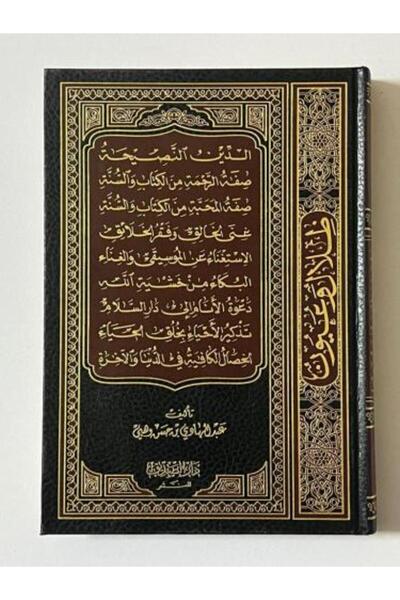 ظلال وعيون
الدين النصيحة
صفة الرحمة من الكتاب والسنة
صفة المحبة من الكتاب والسنة
غنى الخالق وفقر الخلائق
الاستغناء عن الموسيقى والغناء
البكاء من خشية الله
دعوة الأنام إلى دار السلام
تذكير الأحياء بخلق الحياء
الخصال الكافية في الدنيا والآخرة
تأليف
عبد الهادي بن حسن وهبي
للنشر